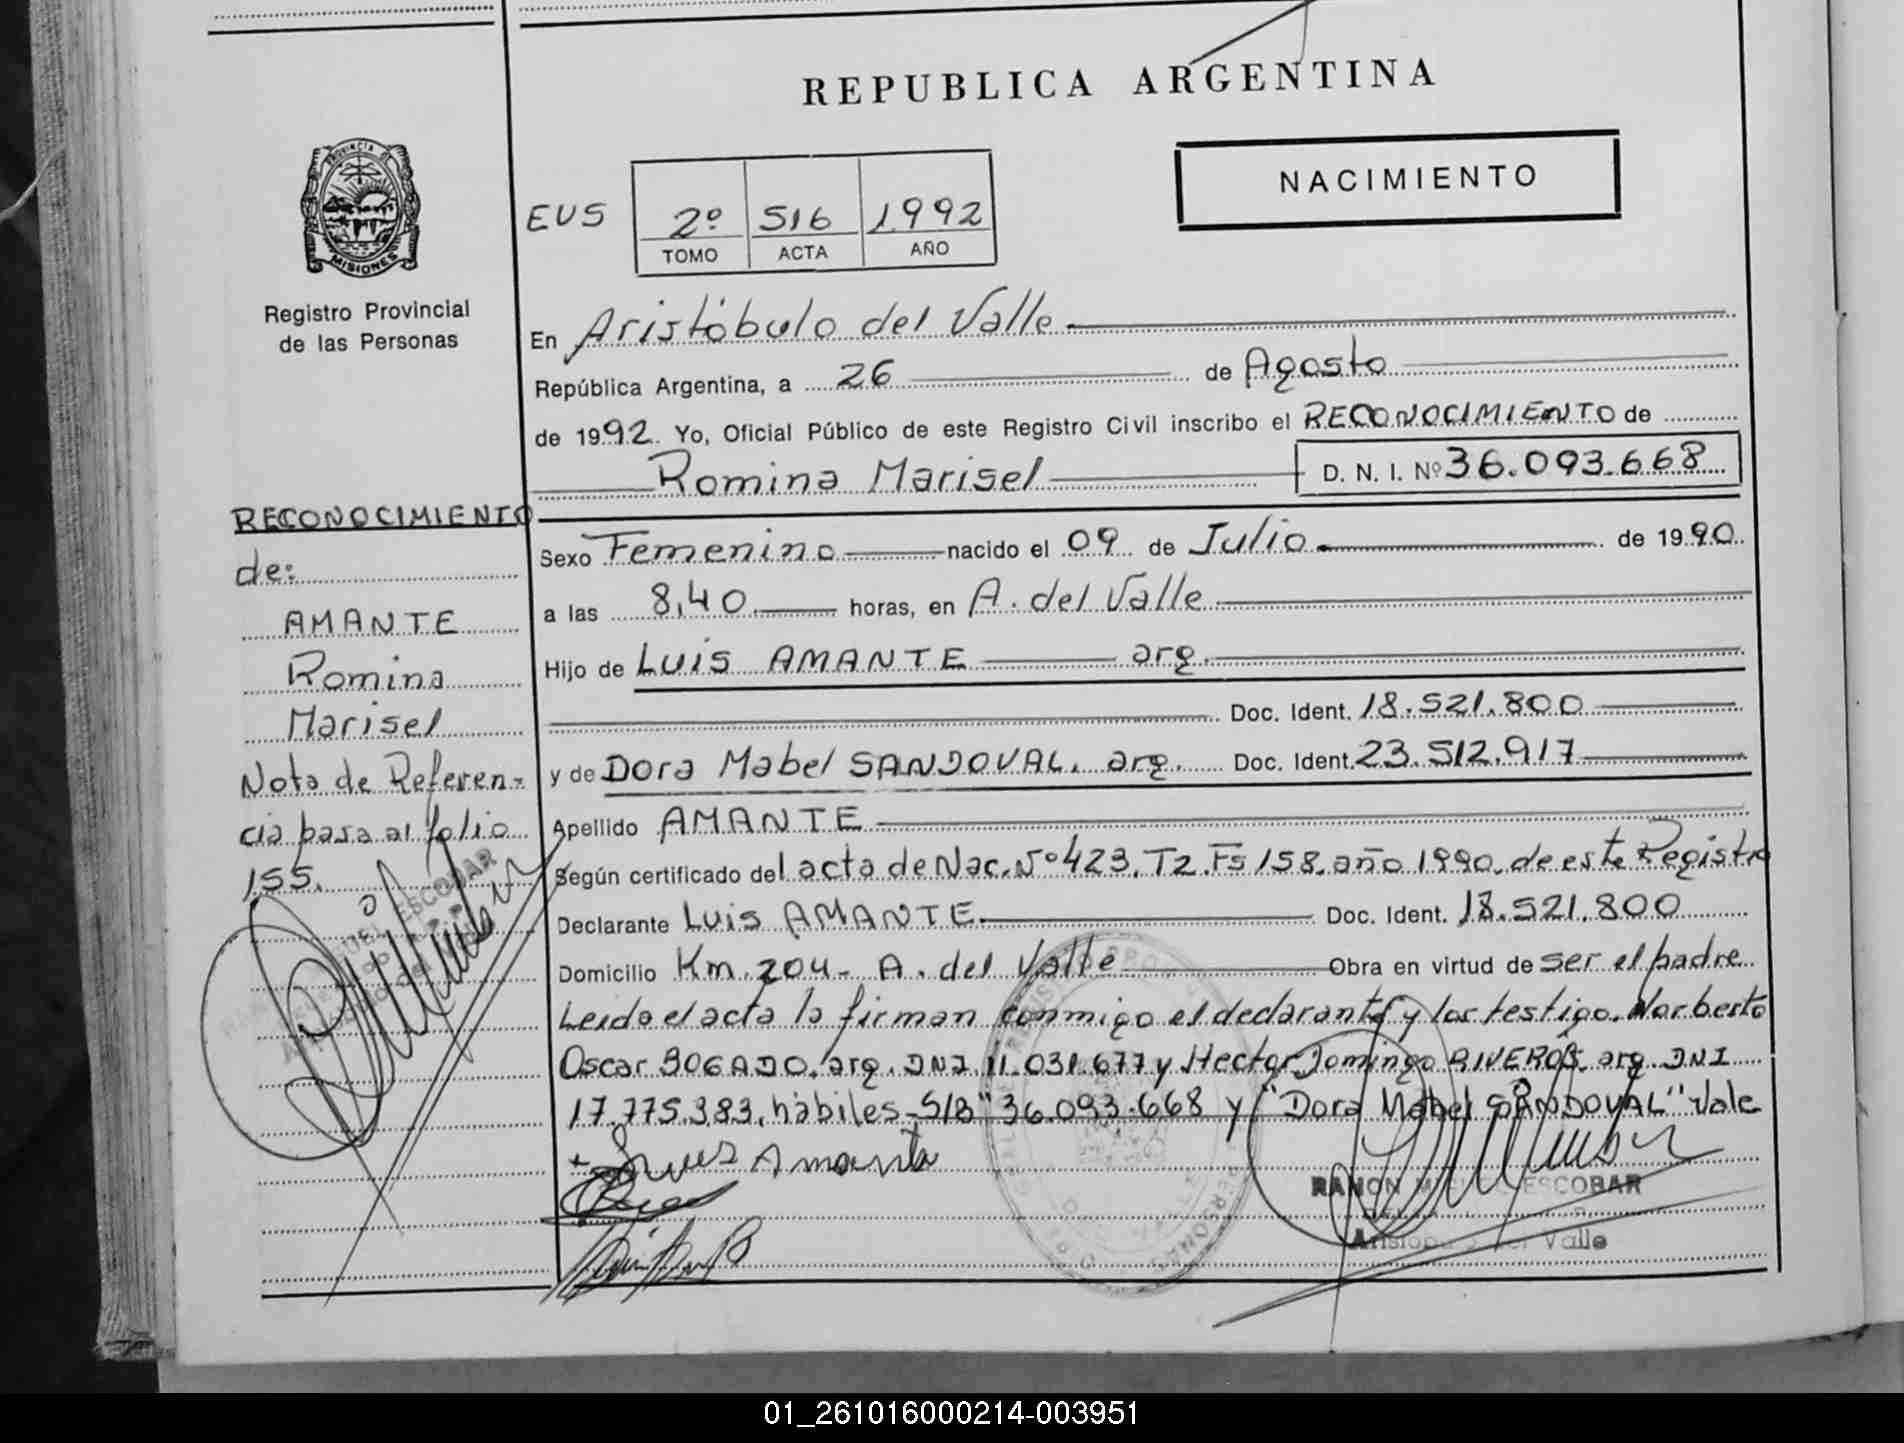 REPUBLICA ARGENTINA
NACIMIENTO
PROVINCIA DE
MISIONES
Registro Provincial
de las Personas
EUS
2º 516 1992
TOMO ACTA AÑO
En Aristóbulo del Valle
República Argentina, a 26 de Agosto
de 1992. Yo, Oficial Público de este Registro Civil inscribo el RECONOCIMIENTO de
Romina Marisel D. N. I. Nº 36.093.668
Sexo Femenino nacido el 09 de Julio de 1990
a las 8,40 horas, en A. del Valle
Hijo de Luis AMANTE arg.
Doc. Ident. 18.521.800
y de Dora Mabel SANDOVAL. arg. Doc. Ident. 23.512.917
Apellido AMANTE
Según certificado del acta de Nac. Nº 423. T2. Fs 158. año 1990. de este Registro
Declarante Luis AMANTE. Doc. Ident. 18.521.800
Domicilio Km 204 - A. del Valle Obra en virtud de ser el padre
Leido el acta la firman conmigo el declarante y los testigo. Norberto
Oscar BOGADO. arg. DNI 11.031.677 y Hector Domingo RIVEROS. arg. DNI
17.775.383, hábiles - S/B "36.093.668 y "Dora Mabel SANDOVAL" Vale
Luis Amante
RAMON MIGUEL ESCOBAR
Aristobulo del Valle
RECONOCIMIENTO
de:
AMANTE
Romina
Marisel
Nota de Referen-
cia pasa al folio
155.
ESCOBAR
01_261016000214-003951